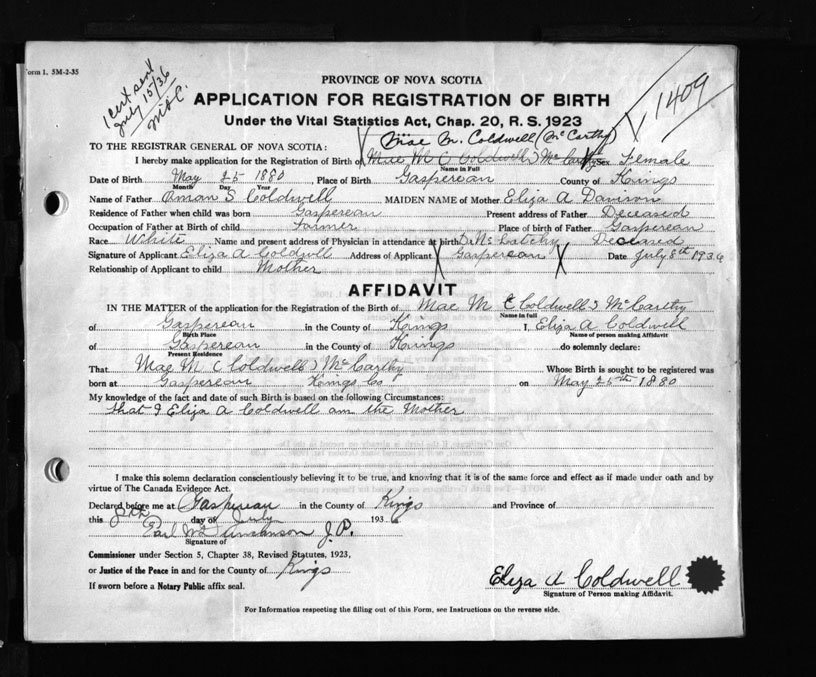 Form 1. 5M-2-35
1 cert sent
July 15/36
1409
PROVINCE OF NOVA SCOTIA
APPLICATION FOR REGISTRATION OF BIRTH
Under the Vital Statistics Act, Chap. 20, R. S. 1923
Mae M. Coldwell (McCarthy)
TO THE REGISTRAR GENERAL OF NOVA SCOTIA:
I hereby make application for the Registration of Birth of Mae M (Coldwell) McCarthy Sex Female
Name in Full
Date of Birth May 25 1880 Place of Birth Gaspereau County of Kings
Month Day Year
Name of Father Oman S Coldwell MAIDEN NAME of Mother Eliza A
Residence of Father when child was born Gaspereau Present address of Father Deceased
Occupation of Father at Birth of child Farmer Place of birth of Father Gaspereau
Race White Name and present address of Physician in attendance at birth Deceased
Signature of Applicant Eliza A Coldwell Address of Applicant Gaspereau Date July 8th 1936
Relationship of Applicant to child Mother
AFFIDAVIT
IN THE MATTER of the application for the Registration of the Birth of Mae M (Coldwell) McCarthy
Name in full
of Gaspereau in the County of Kings I, Eliza A Coldwell
Birth Place Name of person making Affidavit
of Gaspereau in the County of Kings do solemnly declare:
Present Residence
That Mae M (Coldwell) McCarthy Whose Birth is sought to be registered was
born at Gaspereau Kings Co on May 25th 1880
My knowledge of the fact and date of such Birth is based on the following Circumstances:
that I Eliza A Coldwell am the Mother
I make this solemn declaration conscientiously believing it to be true, and knowing that it is of the same force and effect as if made under oath and by
virtue of The Canada Evidence Act.
Declared before me at Gaspereau in the County of Kings and Province of
this 8th day of July 1936
Earl J.P.
Signature of
Commissioner under Section 5, Chapter 38, Revised Statutes, 1923,
or Justice of the Peace in and for the County of Kings
If sworn before a Notary Public affix seal.
Eliza A Coldwell
Signature of Person making Affidavit.
For Information respecting the filling out of this Form, see Instructions on the reverse side.